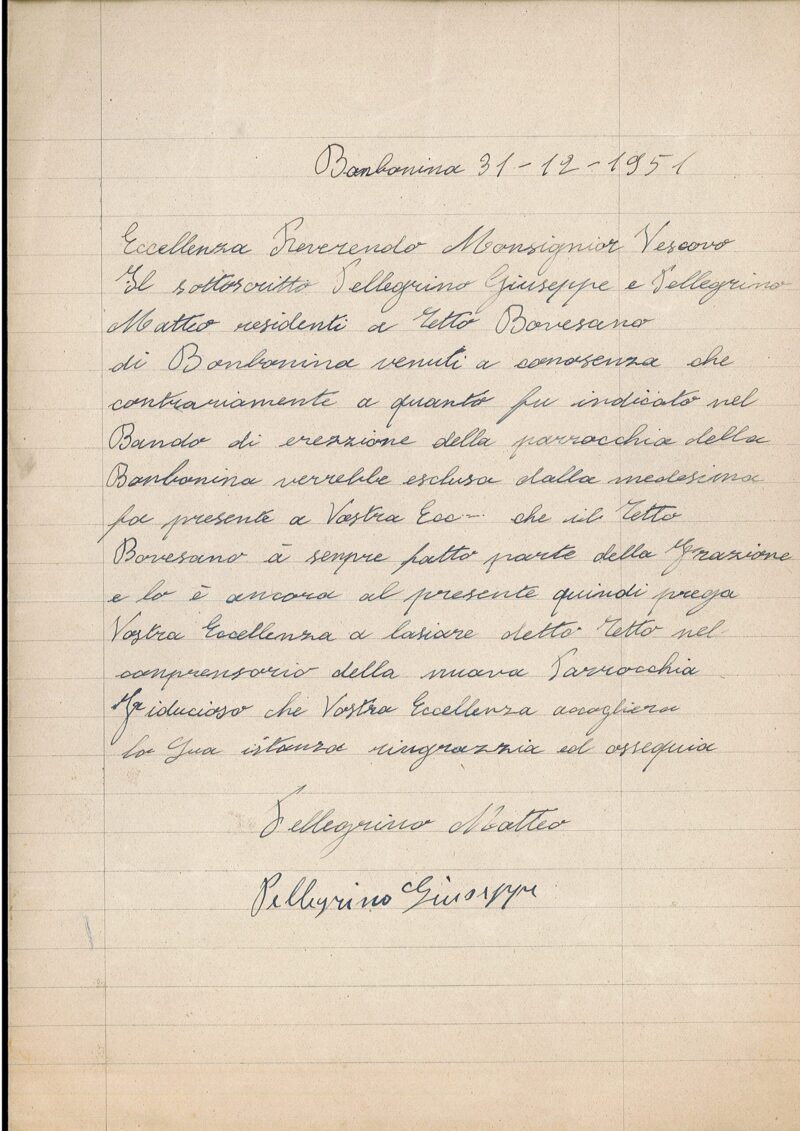 Bonbonina 31-12-1951
Eccellenza Reverendo Monsignior Vescovo
Il sottoscritto Pellegrino Giuseppe e Pellegrino
Matteo residenti a Tetto Bovesano
di Bonbonina venuti a conosenza che
contrariamente a quanto fu indicato nel
Bando di erezzione della parrocchia della
Bonbonina verrebbe esclusa dalla medesima
fa presente a Vostra Ecc- che il Tetto
Bovesano à senpre fatto parte della Frazione
e lo è ancora al presente quindi prega
Vostra Eccellenza a lasiare detto Tetto nel
conprensorio della nuova Parrocchia
Fiducioso che Vostra Eccellenza accogliera
la Sua istanza ringrazzia ed ossequia
Pellegrino Matteo
Pellegrino Giuseppe